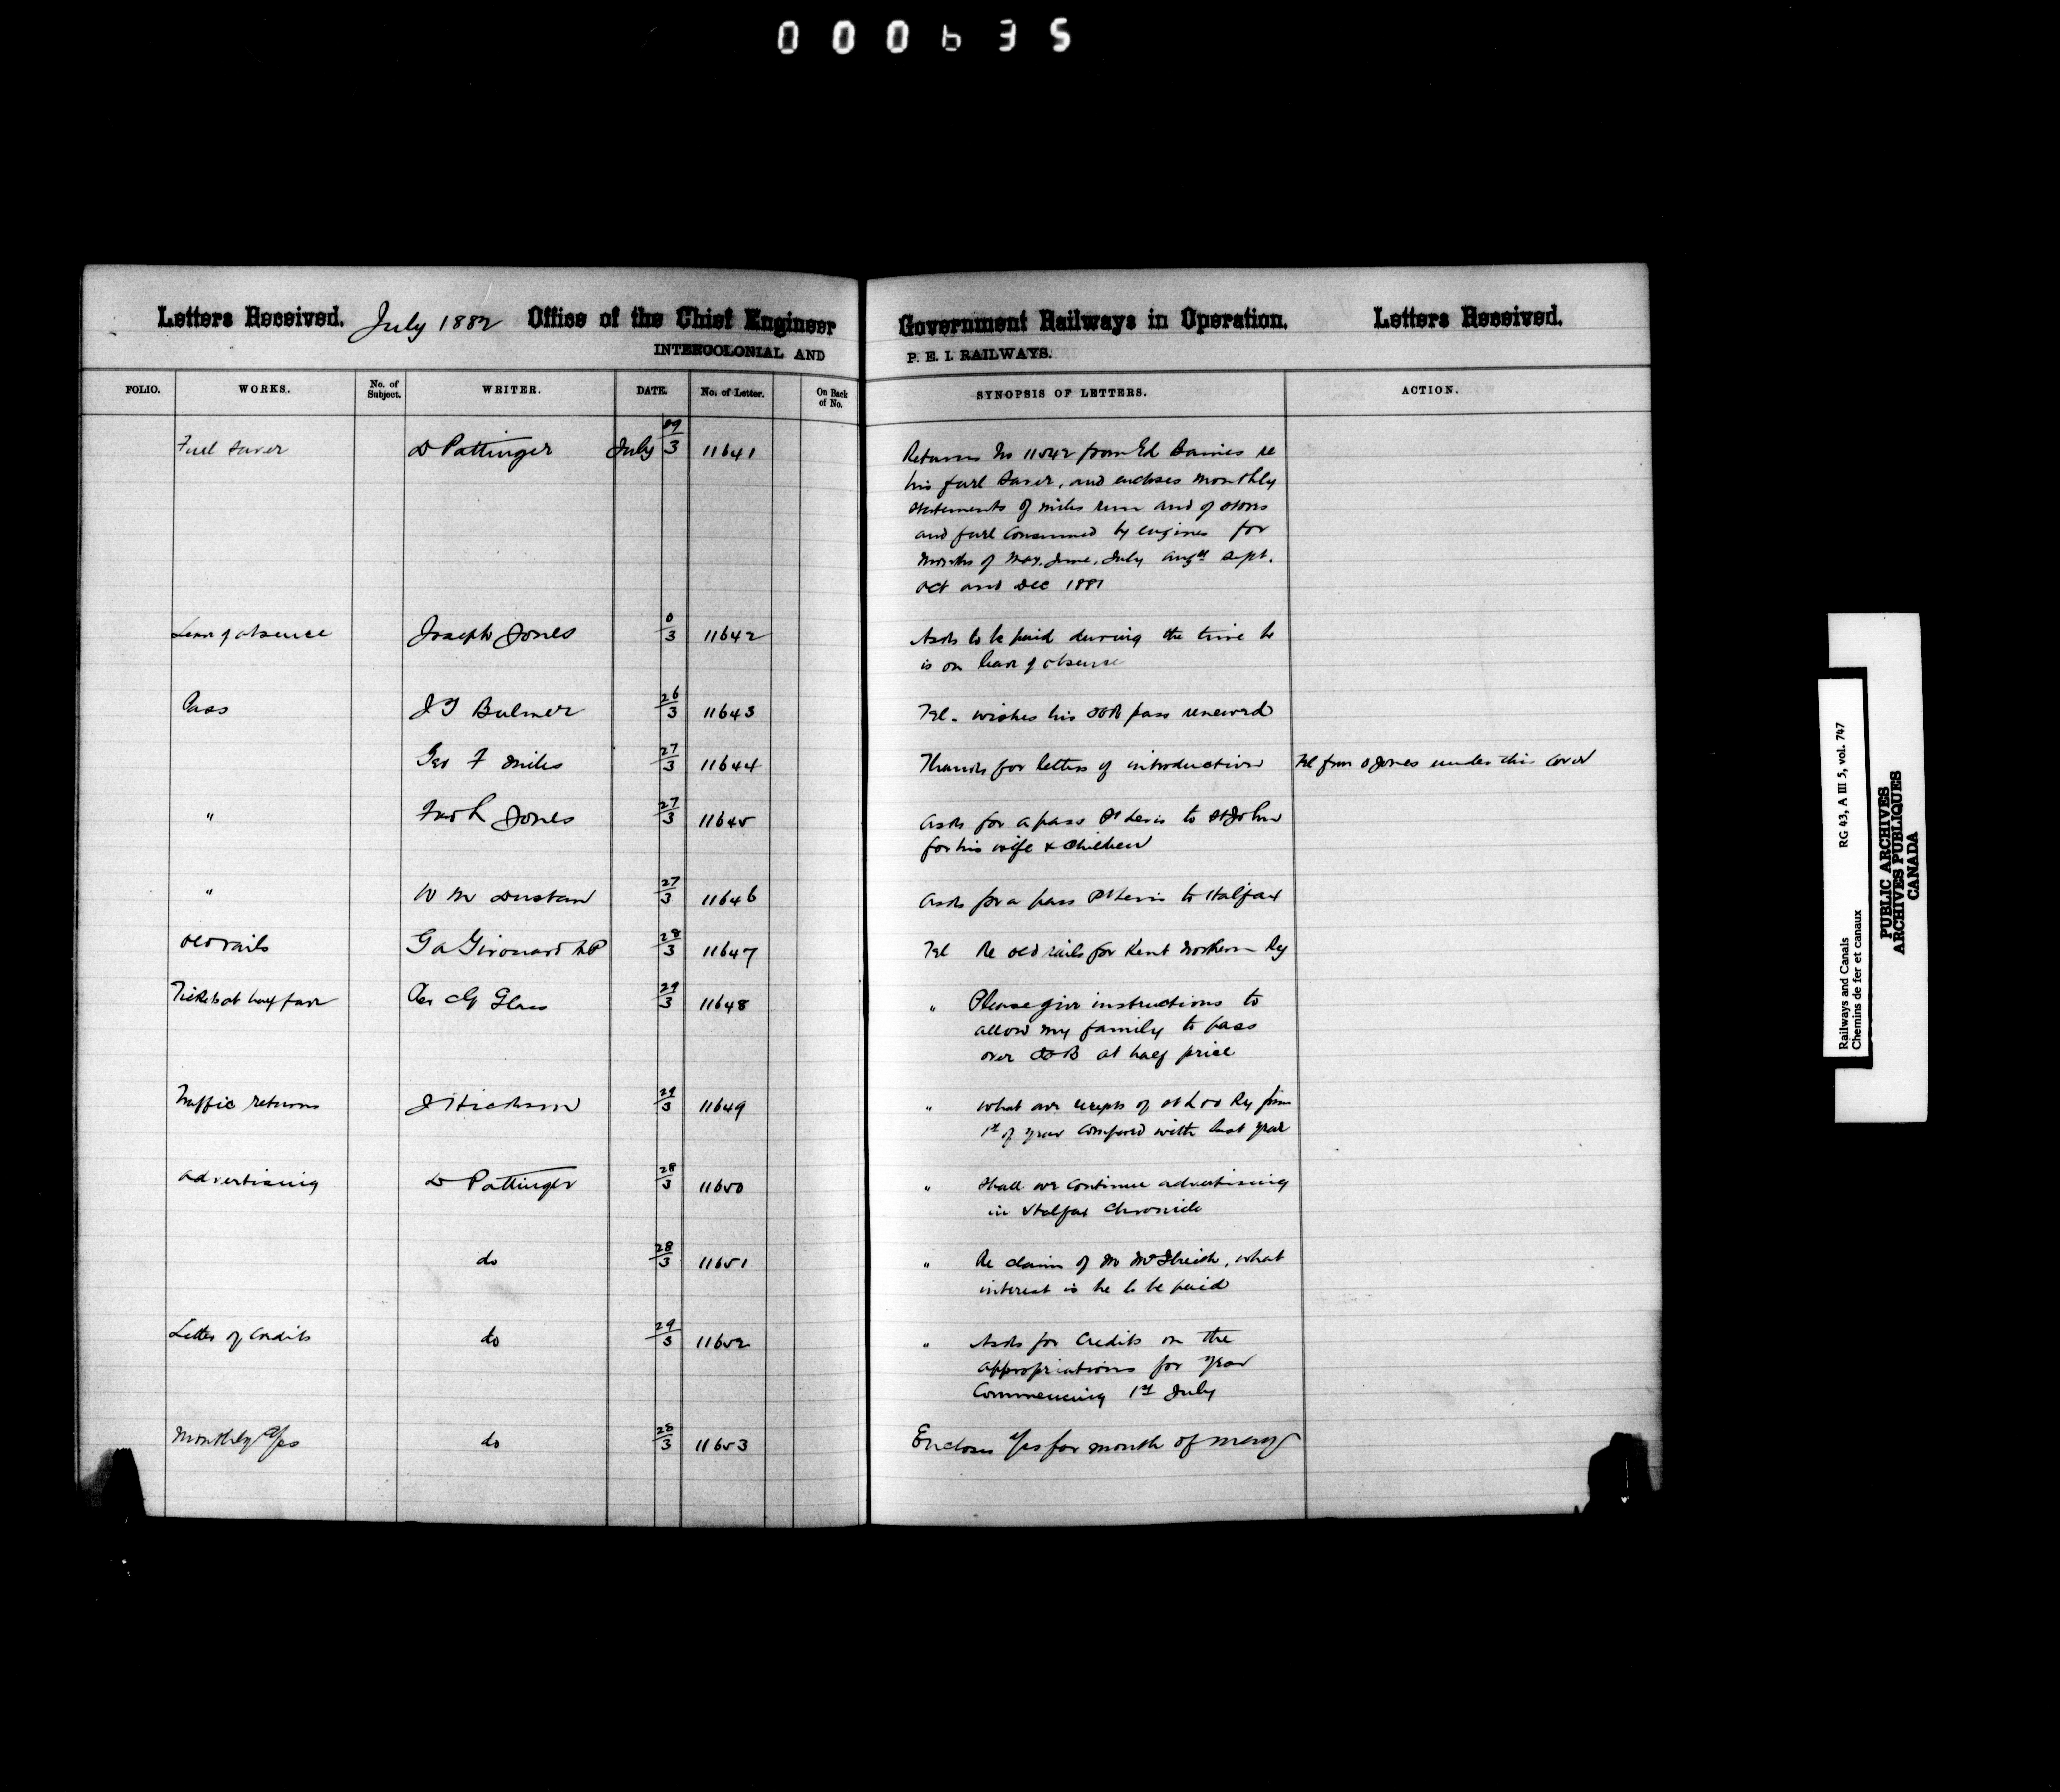 000635
Letters Received. July 1882 Office of the Chief Engineer Government Railways in Operation. Letters Received.
INTERCOLONIAL AND P. E. I. RAILWAYS.
FOLIO. WORKS. No. of Subject. WRITER. DATE. No. of Letter. On Back of No. SYNOPSIS OF LETTERS. ACTION.
Fuel Saver D Pottinger July 29/3 11641 Returns No 11542 from Ed Baines re
his fuel Saver, and encloses monthly
statements of miles run and of stores
and fuel consumed by engines for
months of May, June, July Augst Sept.
Oct and Dec 1881
Leave of absence Joseph Jones 0/3 11642 Asks to be paid during the time he
is on leave of absence
Pass J T Bulmer 26/3 11643 Tel. wishes his ICR pass renewed
Geo F Miles 27/3 11644 Thanks for letters of introduction Tel from Jones under this cover
" Jones 27/3 11645 Asks for a pass Pt Levis to St John
for his wife & children
" W M Dustan 27/3 11646 Asks for a pass Pt Levis to Halifax
Old rails G A Girouard MP 28/3 11647 Tel Re old rails for Kent Northern Ry
Tickets at half fare G Glass 29/3 11648 " Please give instructions to
allow my family to pass
over ICR at half price
Traffic returns J Hickson 29/3 11649 " What are receipts of Ry from
1st of year compared with last year
Advertising D Pottinger 28/3 11650 " Shall we continue advertising
in Halifax Chronicle
do 28/3 11651 " Re claim of M , what
interest is he to be paid
Letter of Credits do 29/3 11652 " Asks for Credits on the
appropriations for year
Commencing 1st July
Monthly a/cs do 28/3 11653 Encloses a/cs for month of May
Railways and Canals RG 43, A III 5, vol. 747
Chemins de fer et canaux
PUBLIC ARCHIVES
ARCHIVES PUBLIQUES
CANADA